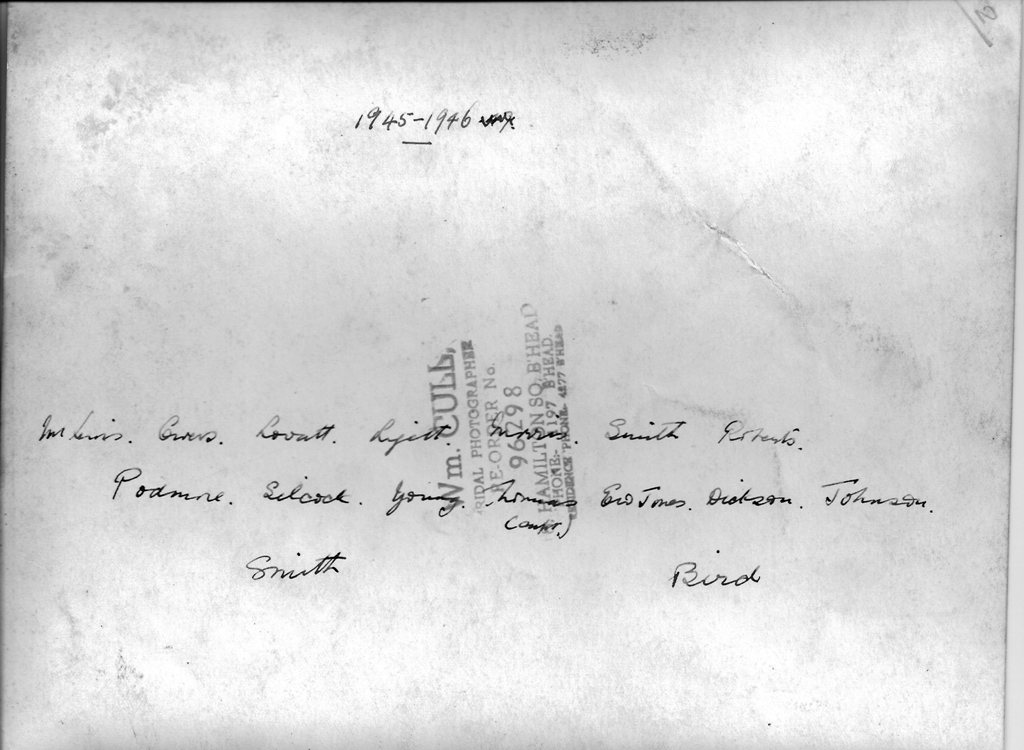 1945-1946
Wm. CULL,
BRIDAL PHOTOGRAPHER
RE-ORDER No.
96298
HAMILTON SQ. B'HEAD
PHONE:- 1197 B'HEAD.
RESIDENCE PHONE:- 4877 B'HEAD
Mr Lewis. Owens. Lovatt. Smith Roberts.
Podmore. Silcock. Young. Thomas Ewd Jones. Dickson. Johnson.
(Capt.)
Smith Bird